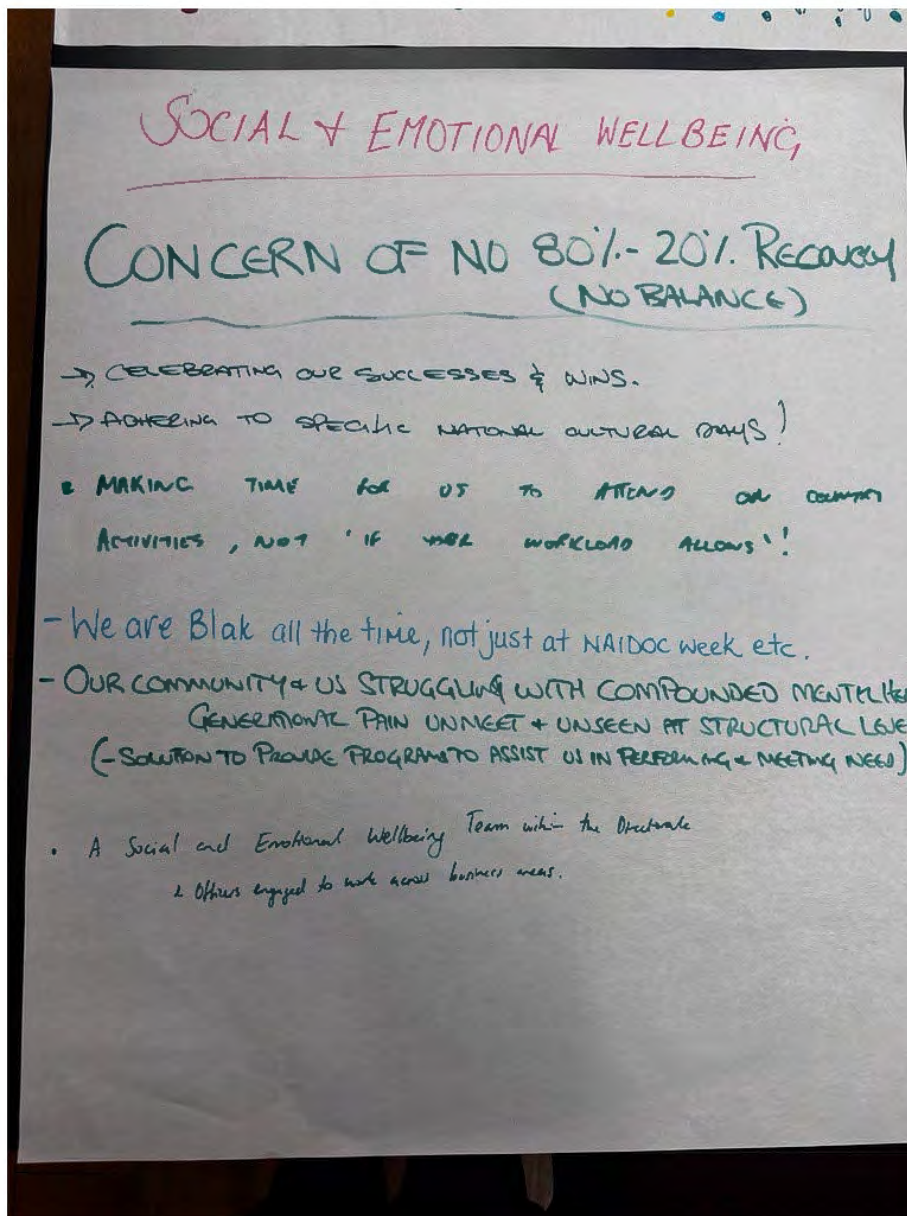 SOCIAL & EMOTIONAL WELLBEING
CONCERN OF NO 80%-20% RECOVERY
(NO BALANCE)
→ CELEBRATING OUR SUCCESSES & WINS.
→ ADHERING TO SPECIFIC NATIONAL CULTURAL DAYS!
• MAKING TIME FOR US TO ATTEND ON COUNTRY
ACTIVITIES, NOT 'IF YOUR WORKLOAD ALLOWS'!
- We are Blak all the time, not just at NAIDOC week etc.
- OUR COMMUNITY & US STRUGGLING WITH COMPOUNDED
GENERATIONAL PAIN UNMEET & UNSEEN AT STRUCTURAL
(- SOLUTION TO PROVIDE PROGRAMS TO ASSIST US IN PERFORMING & MEETING NEED)
• A Social and Emotional Wellbeing Team within the Directorate
& Others engaged to work across business areas.